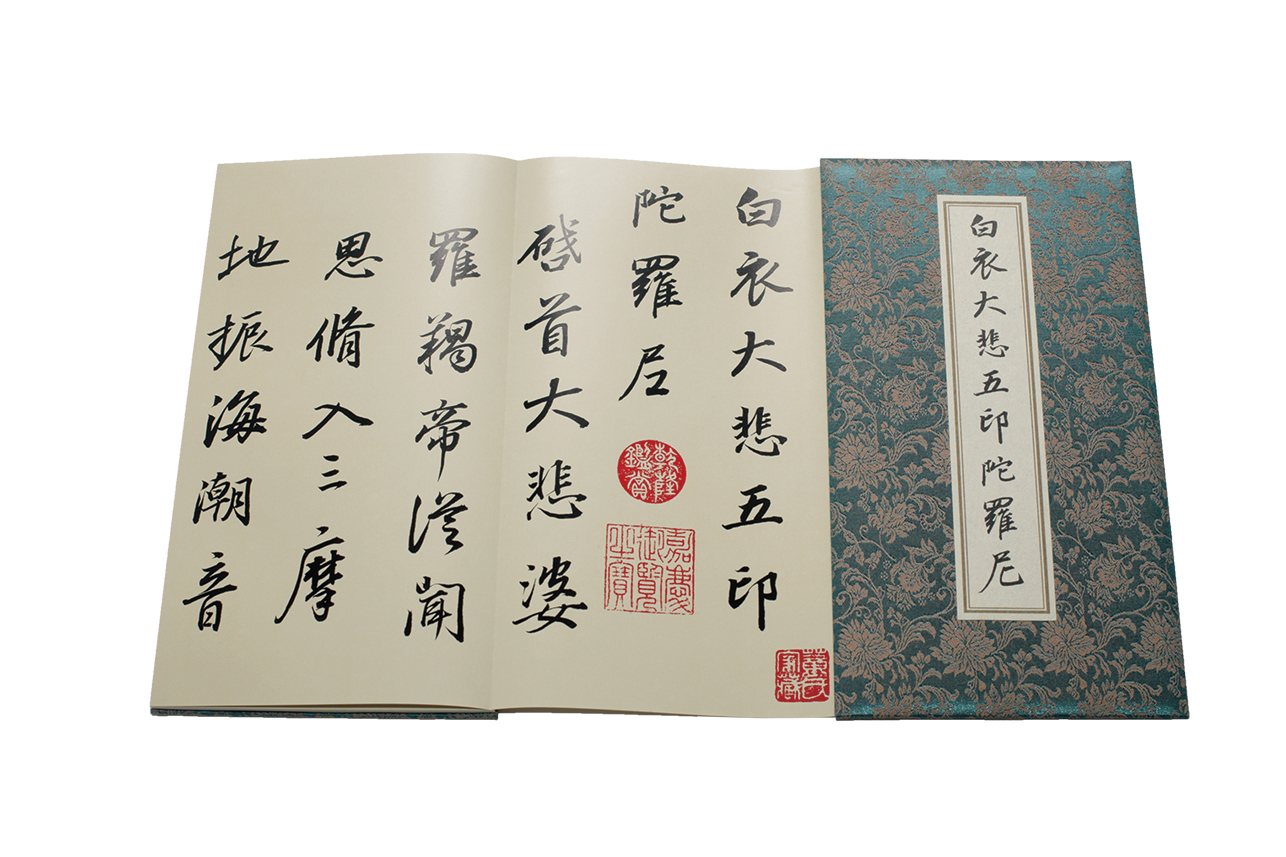 白衣大悲五印陀羅尼
白衣大悲五印
陀羅尼
乾隆鑑賞
嘉慶御覽之寶
啓首大悲婆
羅羯帝從聞
思脩入三摩
地振海潮音